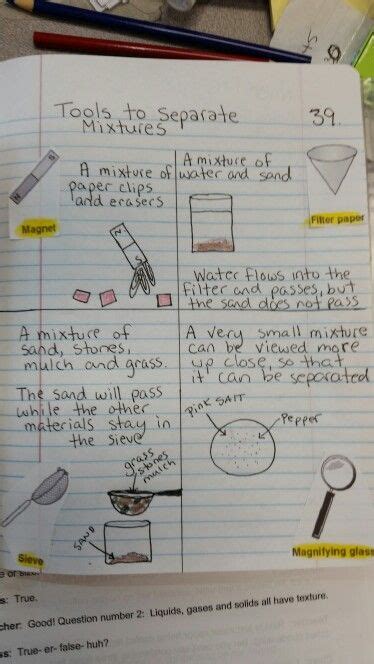 Tools to Separate
Mixtures
39.
A mixture of
paper clips
and erasers
Magnet
N
S
A mixture of
water and sand
Filter paper
Water flows into the
filter and passes, but
the sand does not pass
A mixture of
sand, stones,
mulch and grass.
The sand will pass
while the other
materials stay in
the sieve
grass
stones
mulch
SAND
Sieve
A very small mixture
can be viewed more
up close, so that
it can be separated
Pink SAlT
Pepper
Magnifying glass
s: True.
cher: Good! Question number 2: Liquids, gases and solids all have texture.
ss: True- er- false- huh?